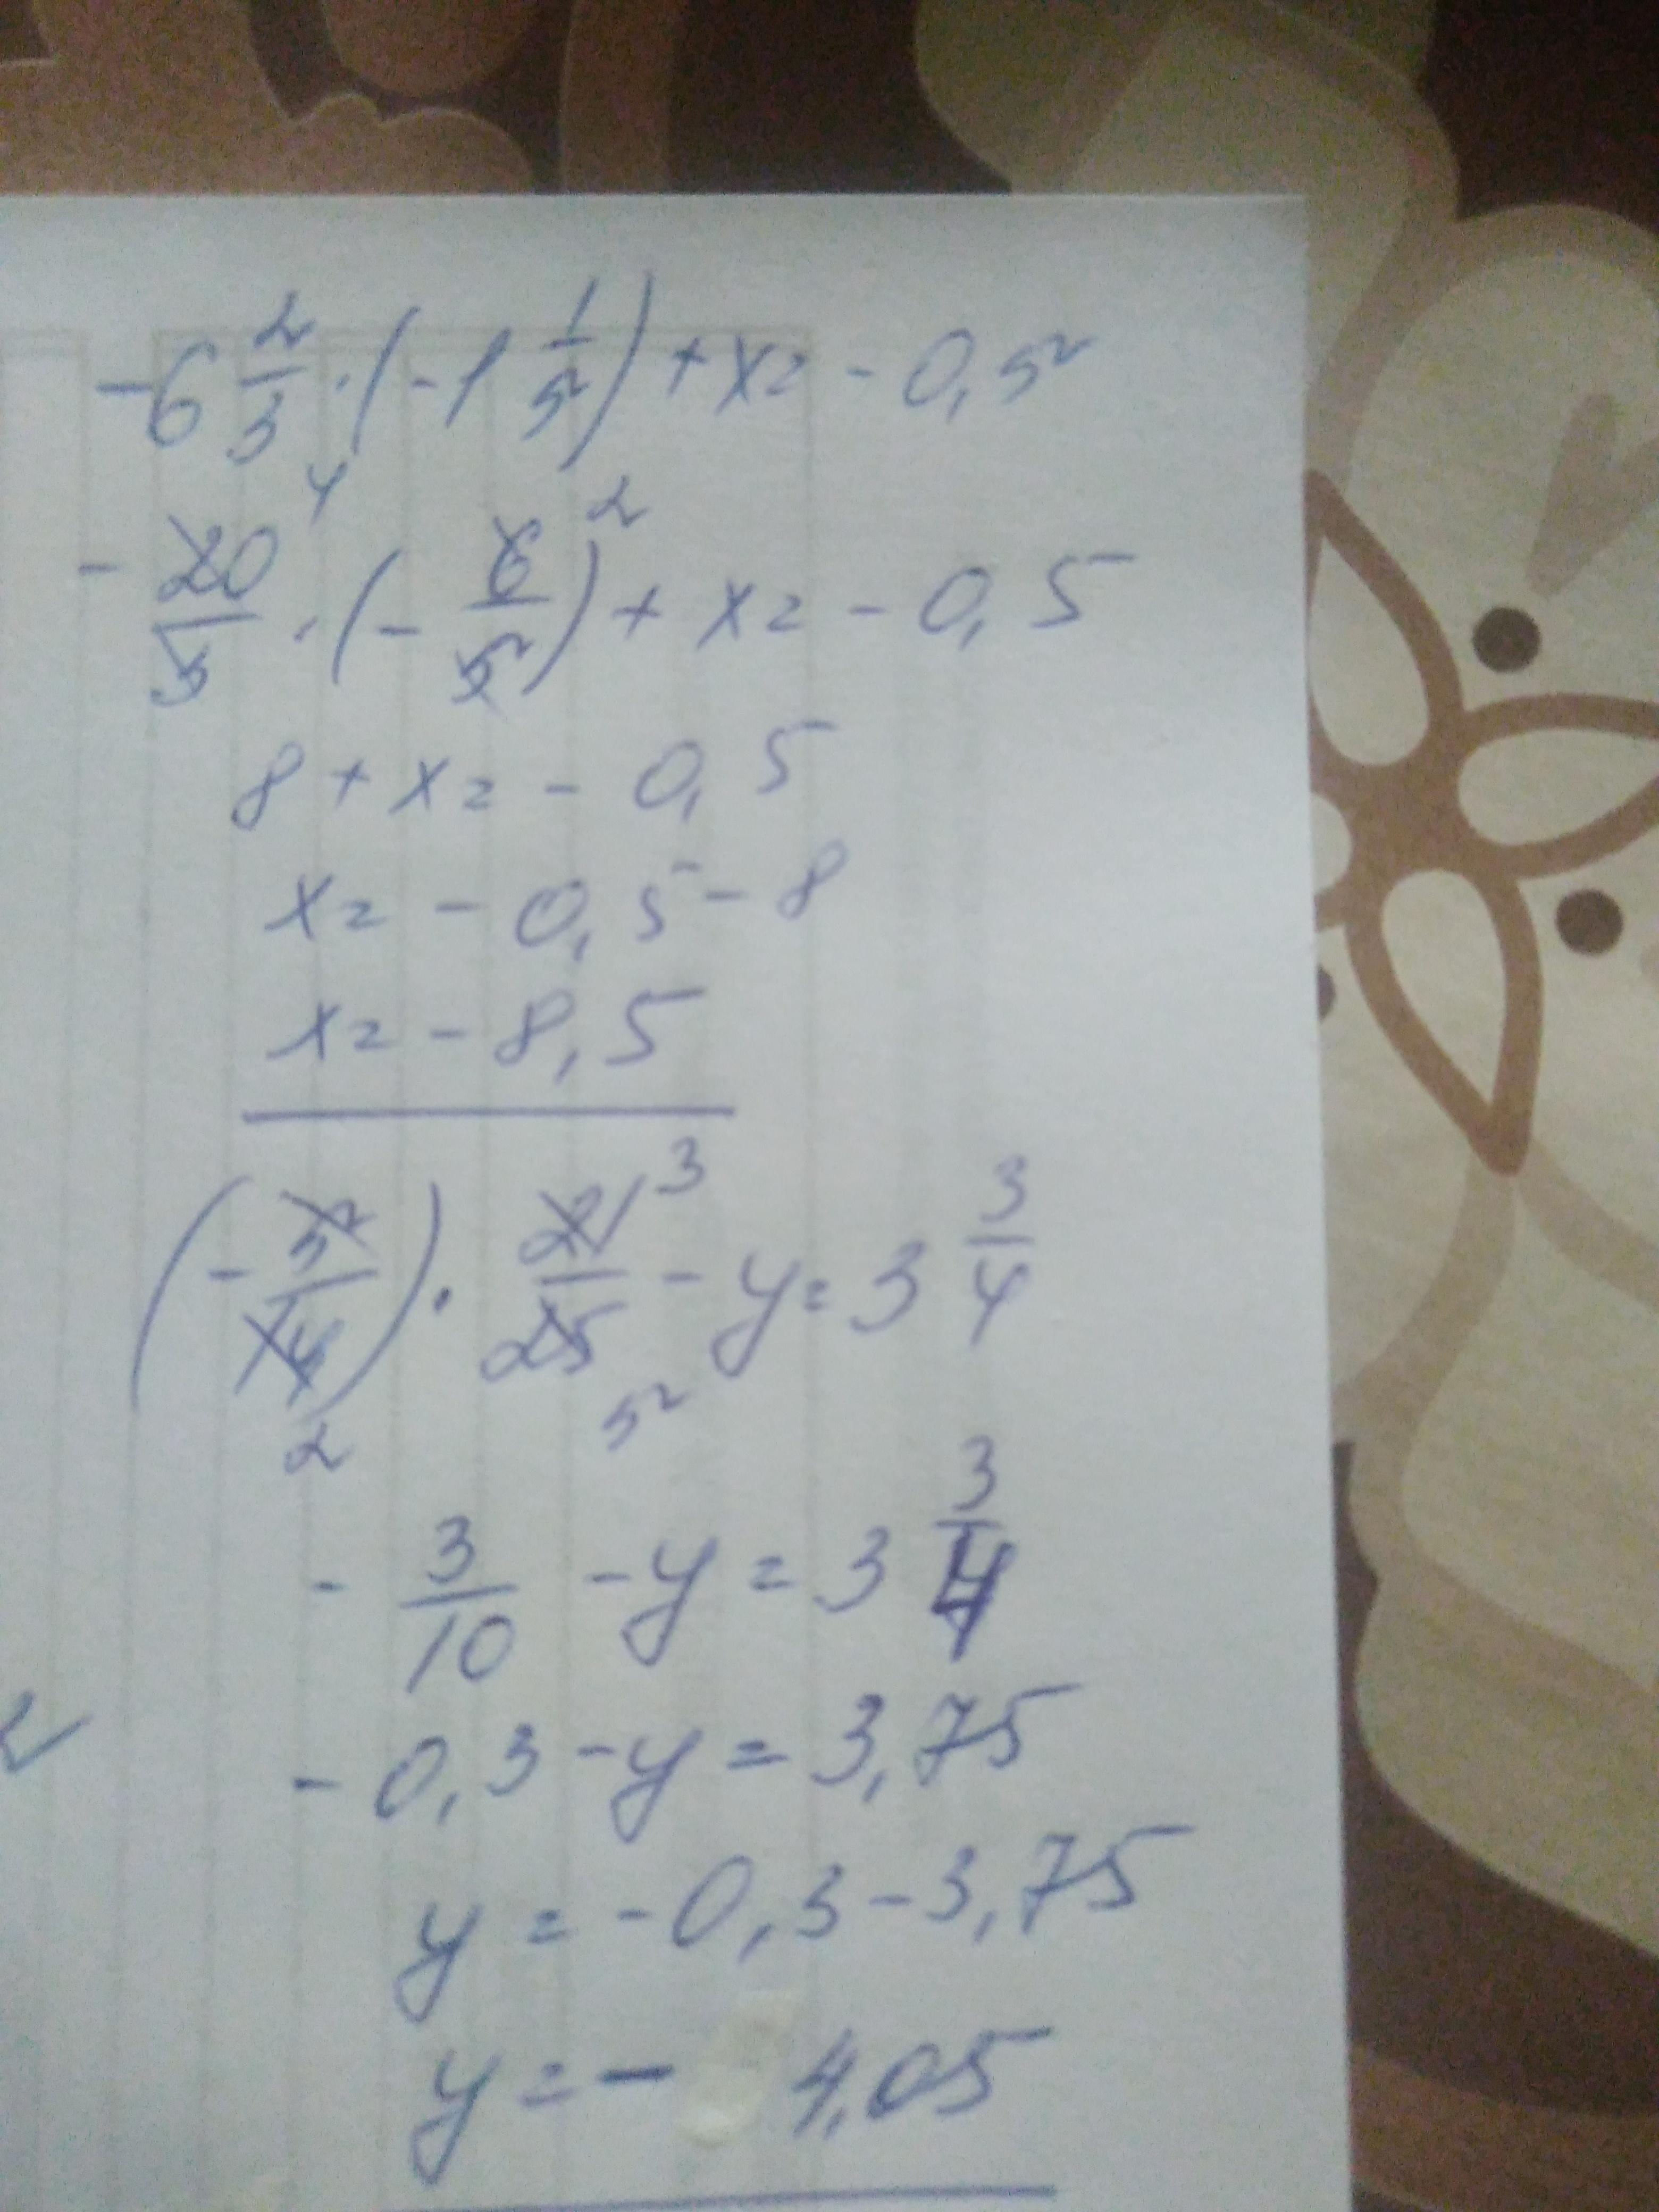 -6 2/3 · (-1 1/5) + x = -0,5
- 20/3 4 · (- 6/5) 2 + x = -0,5
8 + x = -0,5
x = -0,5 - 8
x = -8,5
(- 5/14 2) · 21/25 3 5 - y = 3 3/4
- 3/10 - y = 3 3/4
-0,3 - y = 3,75
y = -0,3 - 3,75
y = - 4,05